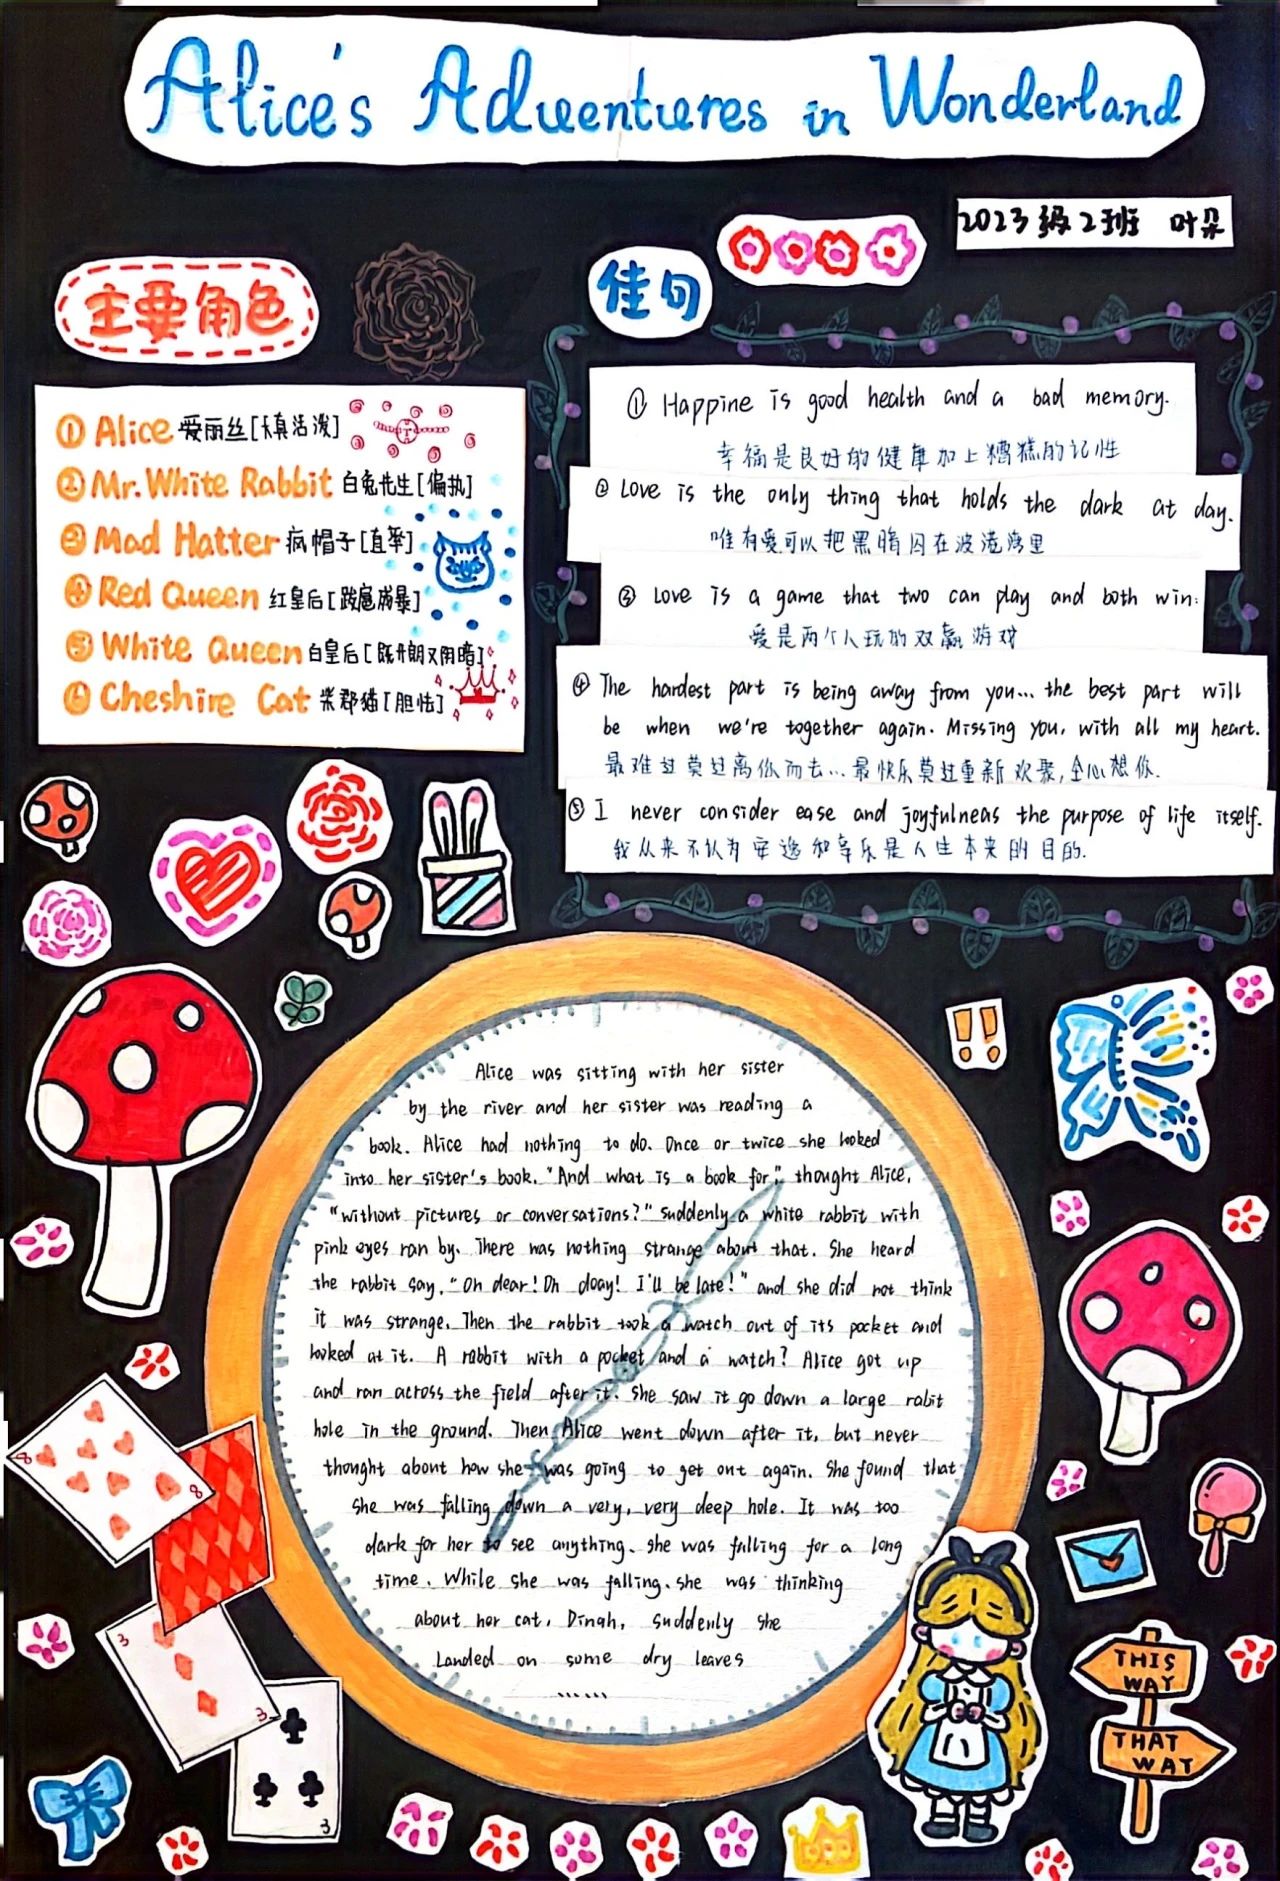 Alice's Adventures in Wonderland
2023级2班 叶朵
主要角色
① Alice 爱丽丝[天真活泼]
② Mr. White Rabbit 白兔先生[偏执]
③ Mad Hatter 疯帽子[直率]
④ Red Queen 红皇后[跋扈残暴]
⑤ White Queen 白皇后[既开朗又阴暗]
⑥ Cheshire Cat 柴郡猫[胆怯]
佳句
① Happine is good health and a bad memory.
幸福是良好的健康加上糟糕的记性
② Love is the only thing that holds the dark at day.
唯有爱可以把黑暗囚在波港湾里
③ Love is a game that two can play and both win.
爱是两个人玩的双赢游戏
④ The hardest part is being away from you... the best part will
be when we're together again. Missing you, with all my heart.
最难过莫过离你而去...最快乐莫过重新欢聚,全心想你.
⑤ I never consider ease and joyfulneas the purpose of life itself.
我从来不认为安逸和享乐是人生本来的目的.
Alice was sitting with her sister
by the river and her sister was reading a
book. Alice had nothing to do. Once or twice she looked
into her sister's book. "And what is a book for," thought Alice,
"without pictures or conversations?" Suddenly a white rabbit with
pink eyes ran by. There was nothing strange about that. She heard
the rabbit say, "Oh dear! Oh doay! I'll be late!" and she did not think
it was strange. Then the rabbit took a watch out of its pocket and
looked at it. A rabbit with a pocket and a watch? Alice got up
and ran across the field after it. She saw it go down a large rabit
hole in the ground. Then Alice went down after it, but never
thought about how she was going to get out again. She found that
she was falling down a very, very deep hole. It was too
dark for her to see anything. she was falling for a long
time. While she was falling, she was thinking
about her cat, Dinah, suddenly she
Landed on some dry leaves
......
8
8
3
3
3
THIS
WAY
THAT
WAY